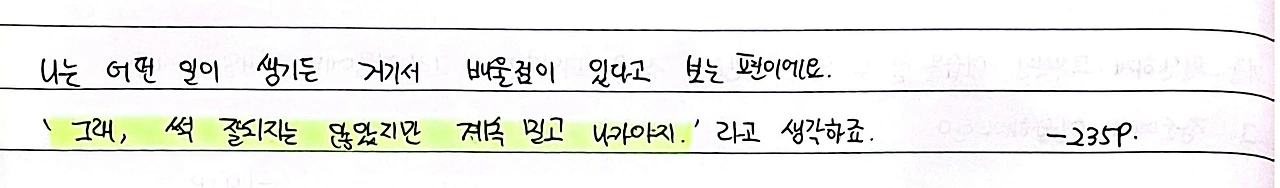 나는 어떤 일이 생기든 거기서 배울점이 있다고 보는 편이에요.
'그래, 썩 잘되지는 않았지만 계속 밀고 나가야지.' 라고 생각하죠. -235P.